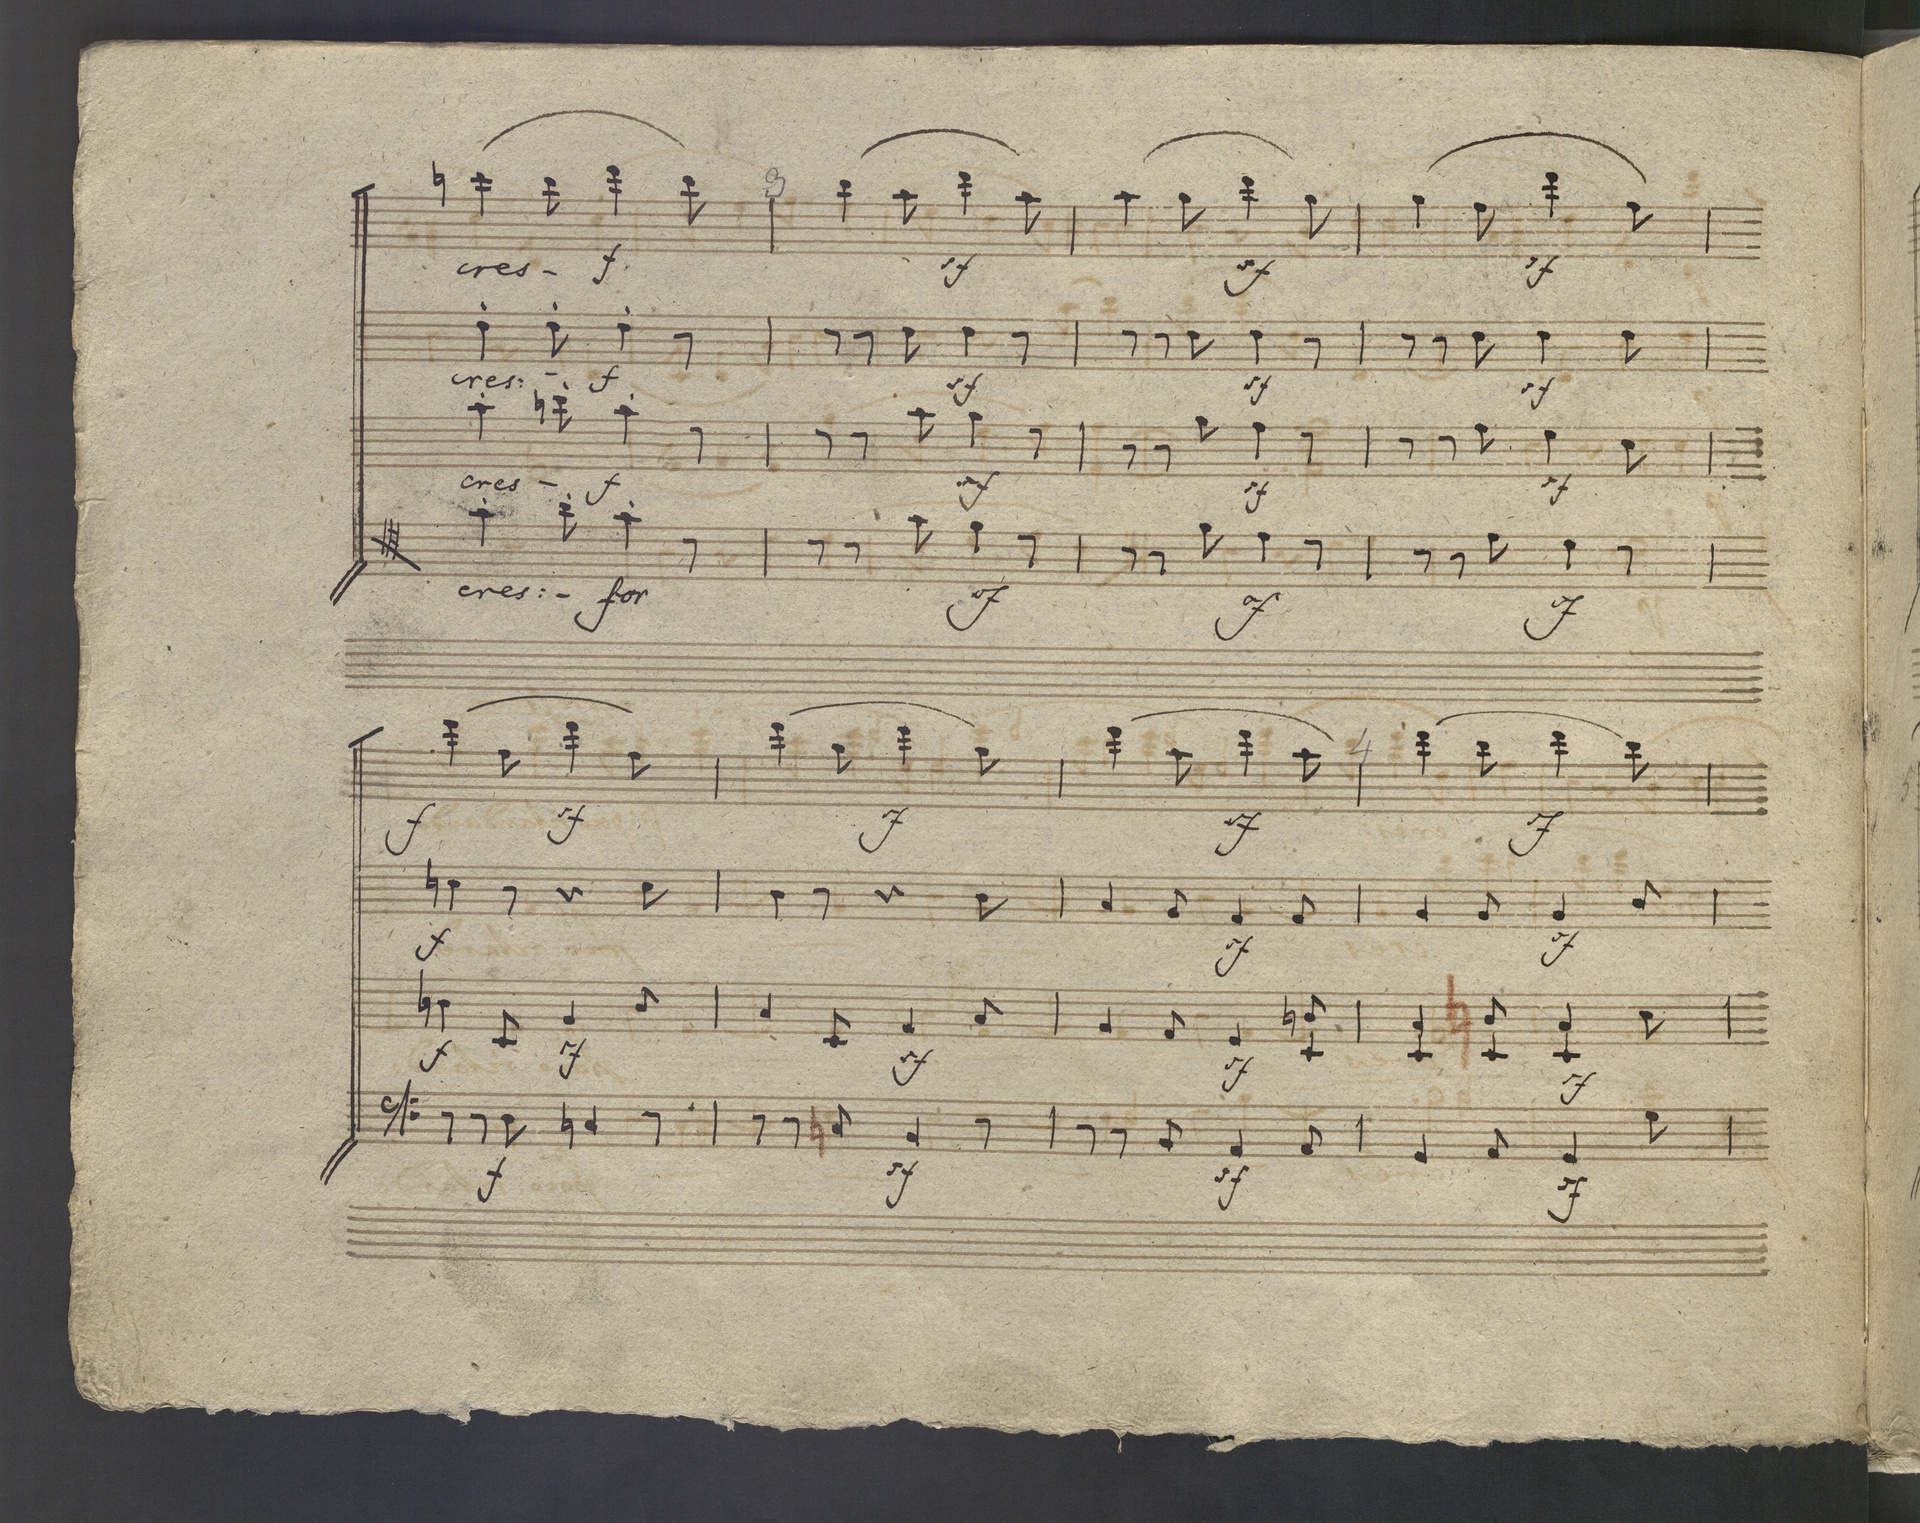 3
cres - f sf sf sf
cres: - f sf sf sf
cres - f sf sf sf
cres: - for sf sf sf
4
f sf sf sf sf
f sf sf
f sf sf sf sf
f sf sf sf